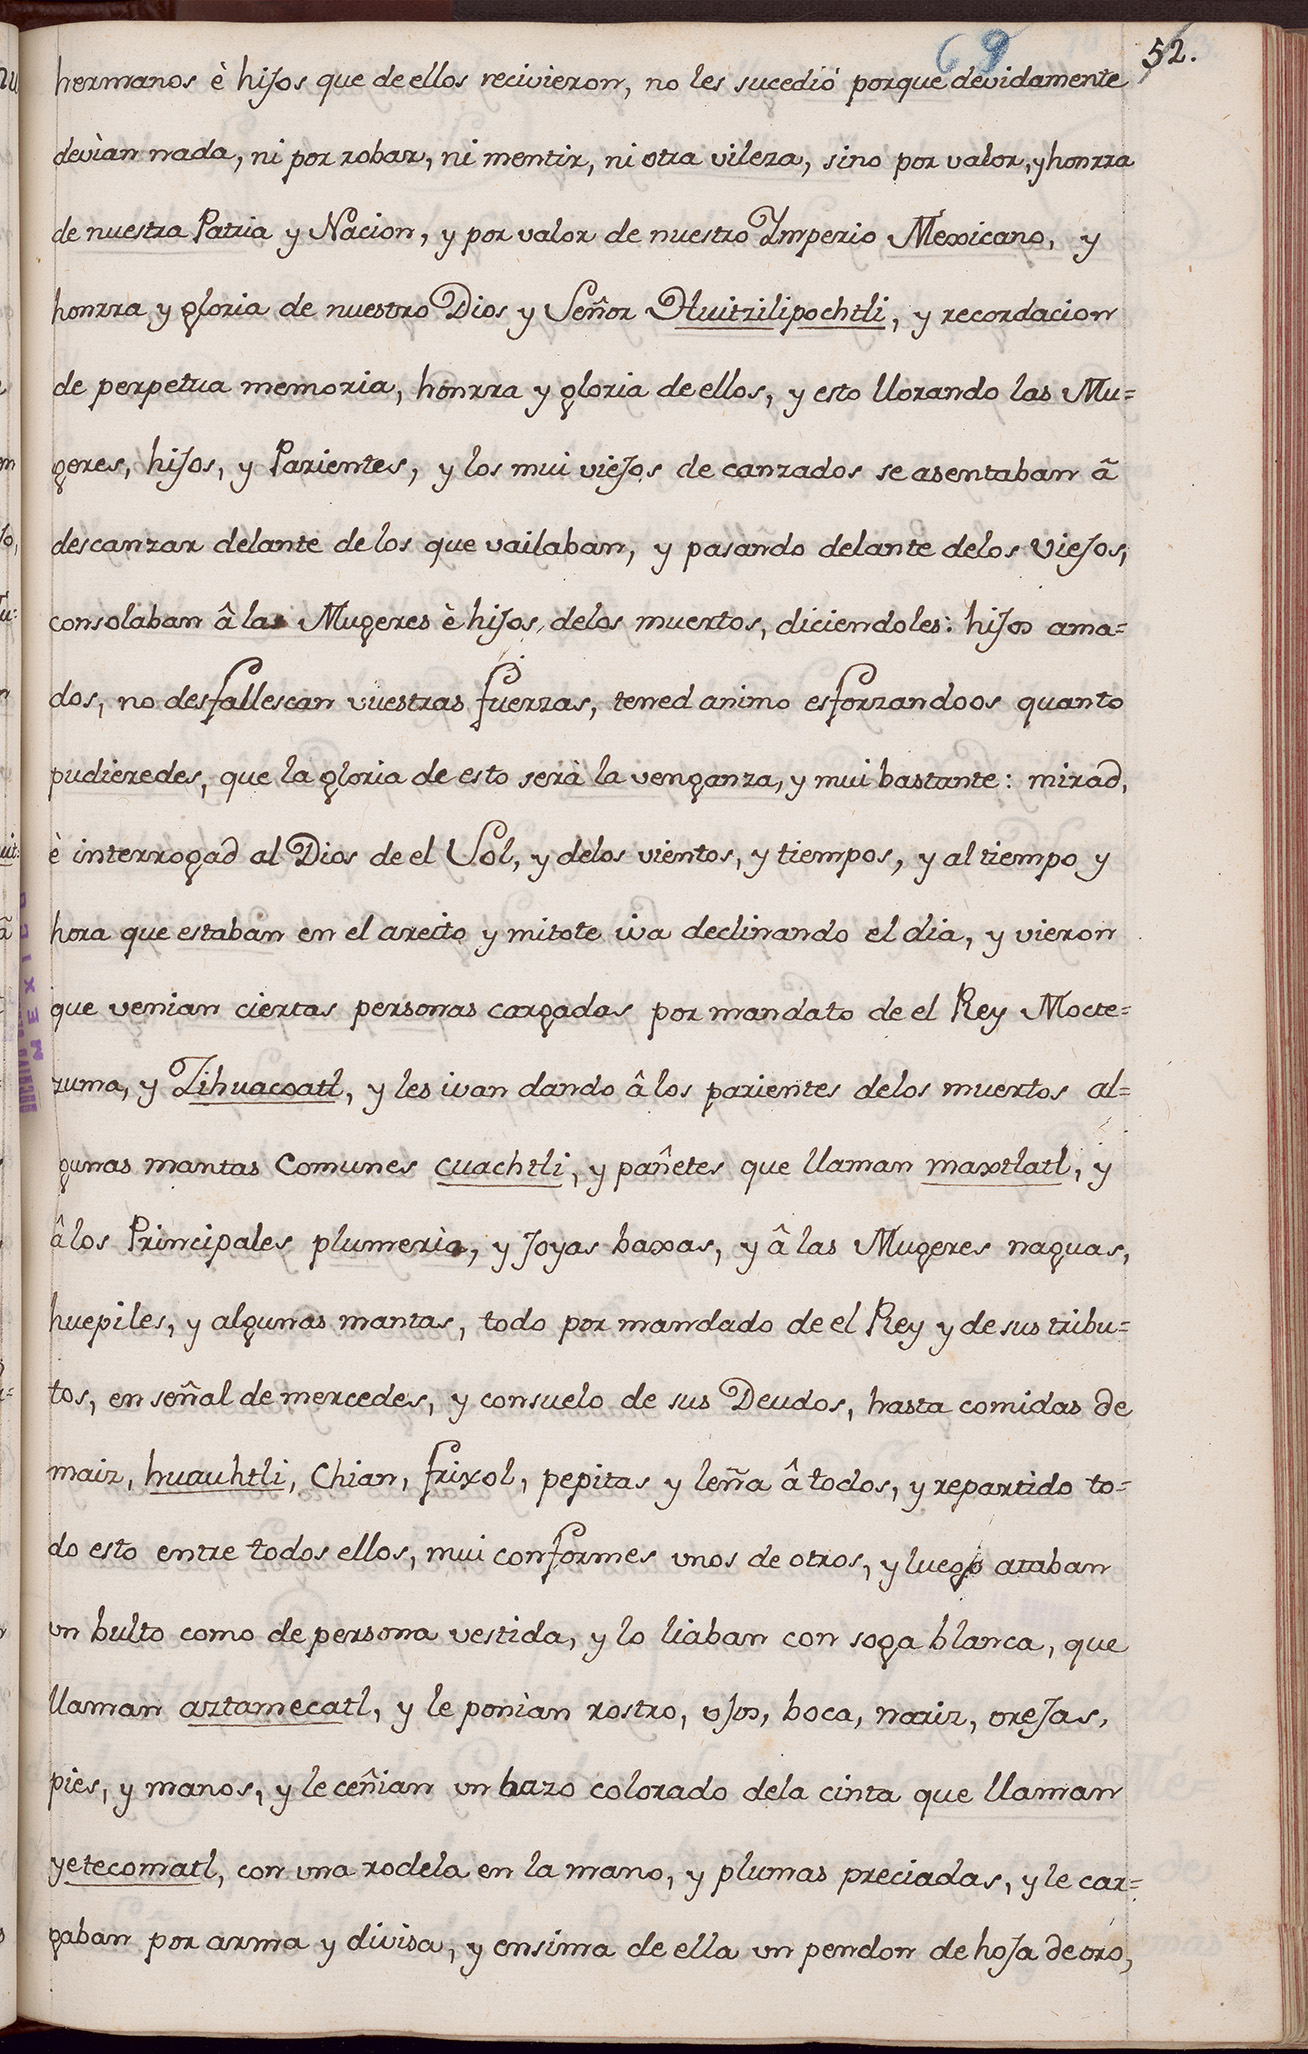 69 52.
hermanos è hijos que de ellos recivieron, no les sucedió porque devidamente
devian nada, ni por robar, ni mentir, ni otra vileza, sino por valor, y honrra
de nuestra Patria y Nacion, y por valor de nuestro Imperio Mexicano, y
honrra y gloria de nuestro Dios y Señor Huitzilipochtli, y recordacion
de perpetua memoria, honrra y gloria de ellos, y esto llorando las Mu=
geres, hijos, y Parientes, y los mui viejos de canzados se asentaban â
descanzar delante de los que vailaban, y pasando delante delos Viejos,
consolaban â las Mugeres è hijos, delos muertos, diciendoles: hijos ama=
dos, no desfallescan vuestras fuerzas, tened animo esforzandoos quanto
pudieredes, que la gloria de esto serà la venganza, y mui bastante: mirad,
è interrogad al Dios de el Sol, y delos vientos, y tiempos, y al tiempo y
hora que estaban en el areito y mitote iva declinando el dia, y vieron
que venian ciertas personas cargadas por mandato de el Rey Mocte=
zuma, y Zihuacoatl, y les ivan dando â los parientes delos muertos al=
gunas mantas Comunes cuachtli, y pañetes que llaman maxtlatl, y
â los Principales plumeria, y Joyas baxas, y â las Mugeres naguas,
huepiles, y algunas mantas, todo por mandado de el Rey y de sus tribu=
tos, en señal de mercedes, y consuelo de sus Deudos, hasta comidas de
maiz, huauhtli, Chian, frixol, pepitas y leña â todos, y repartido to=
do esto entre todos ellos, mui conformes unos de otros, y luego ataban
un bulto como de persona vestida, y lo liaban con soga blanca, que
llaman aztamecatl, y le ponian rostro, ojos, boca, nariz, orejas,
pies, y manos, y le ceñian un bazo colorado dela cinta que llaman
yetecomatl, con una rodela en la mano, y plumas preciadas, y le car=
gaban por arma y divisa, y ensima de ella un pendon de hoja de oro,